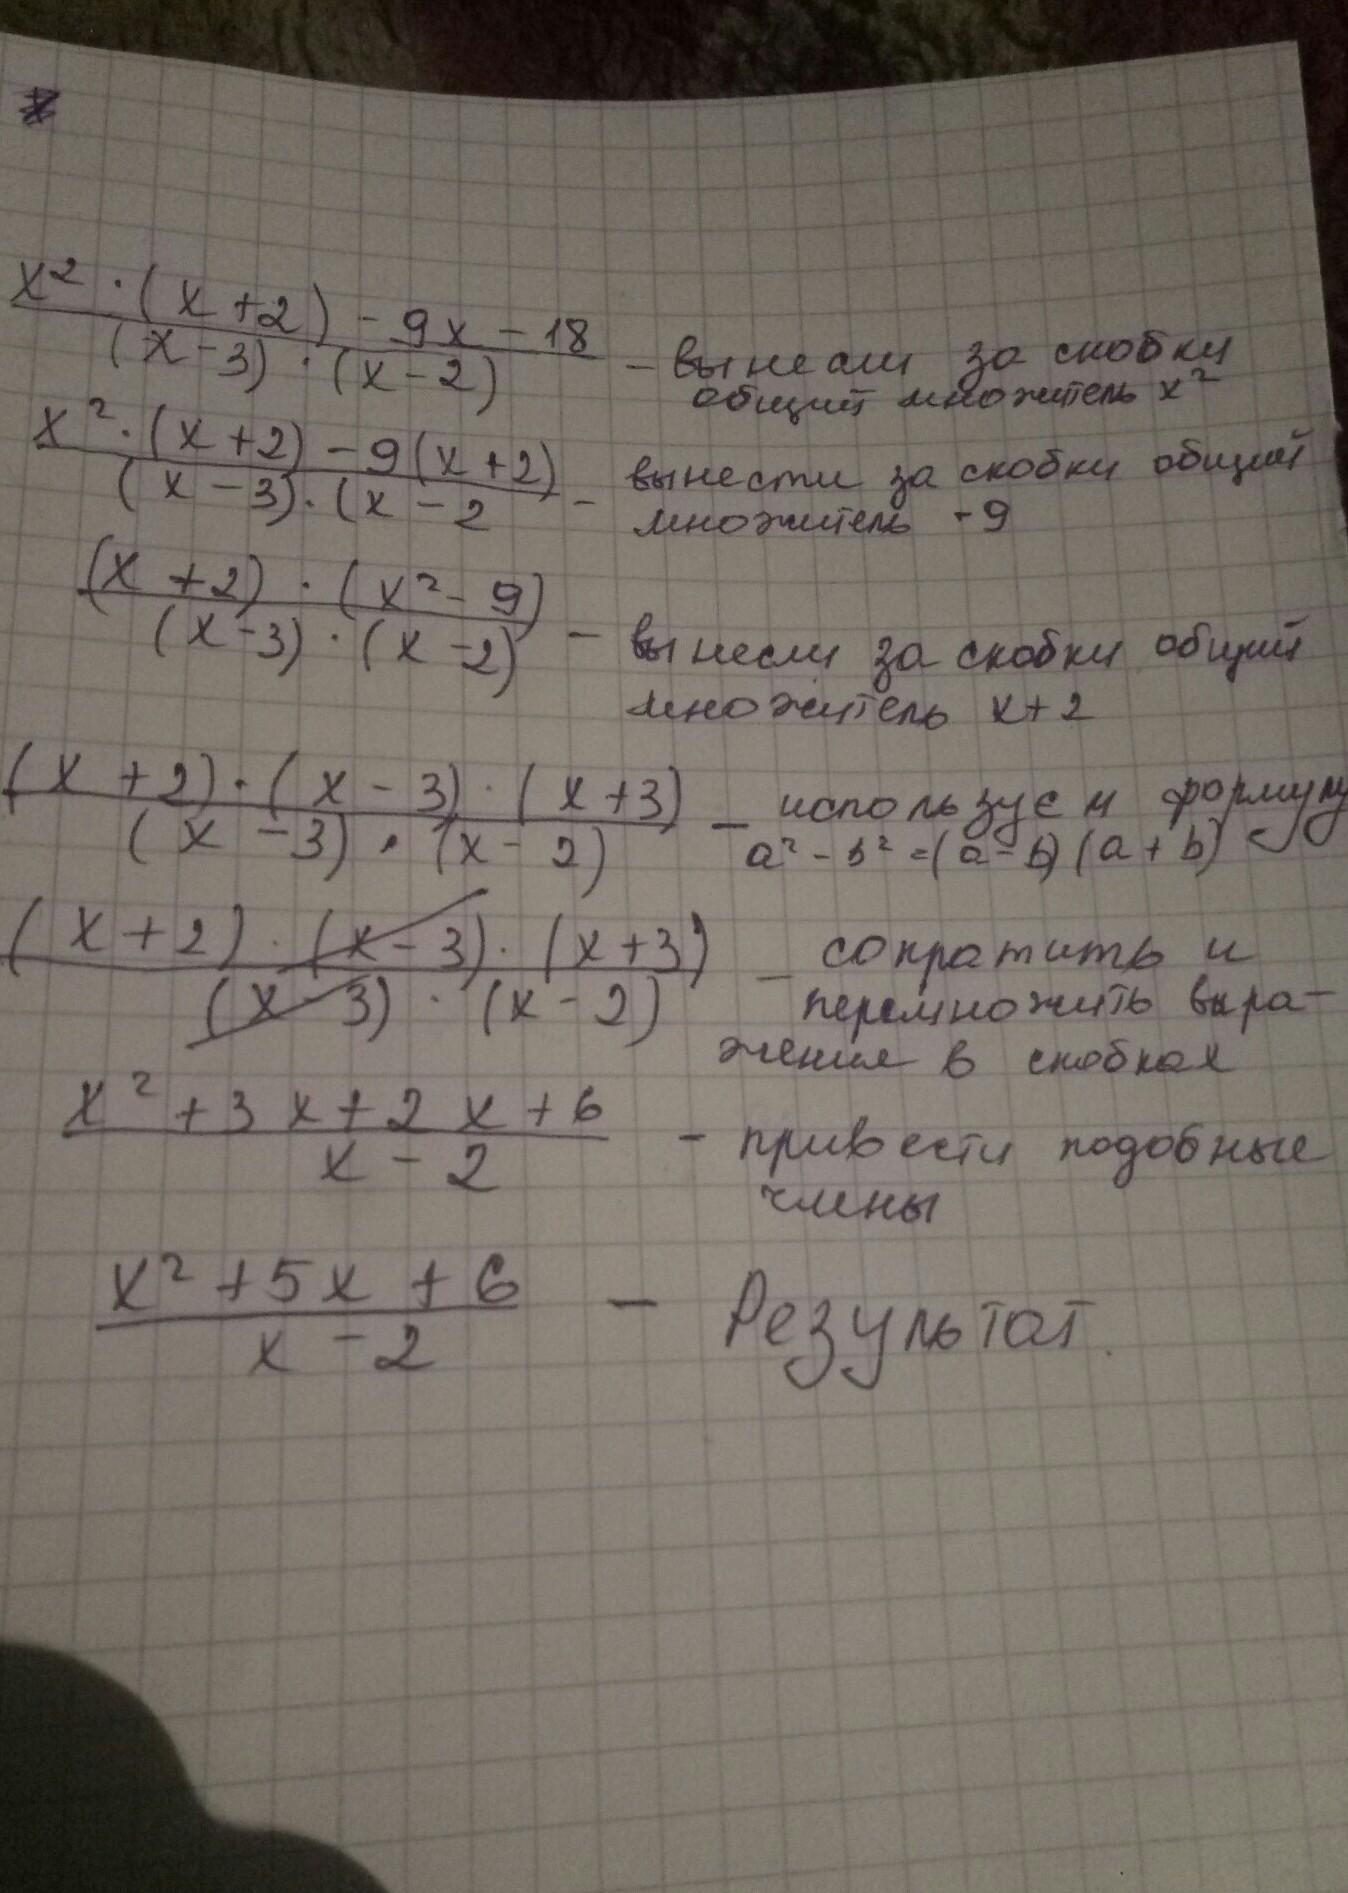 x² · (x+2) - 9x - 18
(x-3) · (x-2)
- вынесли за скобки
общий множитель x²
x² · (x+2) - 9(x+2)
(x-3) · (x-2
- вынести за скобки общий
множитель -9
(x+2) · (x²-9)
(x-3) · (x-2)
- вынесли за скобки общий
множитель x+2
(x+2) · (x-3) · (x+3)
(x-3) · (x-2)
- используем формулу
a² - b² = (a-b) (a+b)
(x+2) · (x-3) · (x+3)
(x-3) · (x-2)
- сократить и
перемножить выра-
жения в скобках
x² + 3x + 2x + 6
x - 2
- привести подобные
члены
x² + 5x + 6
x - 2
- Результат.